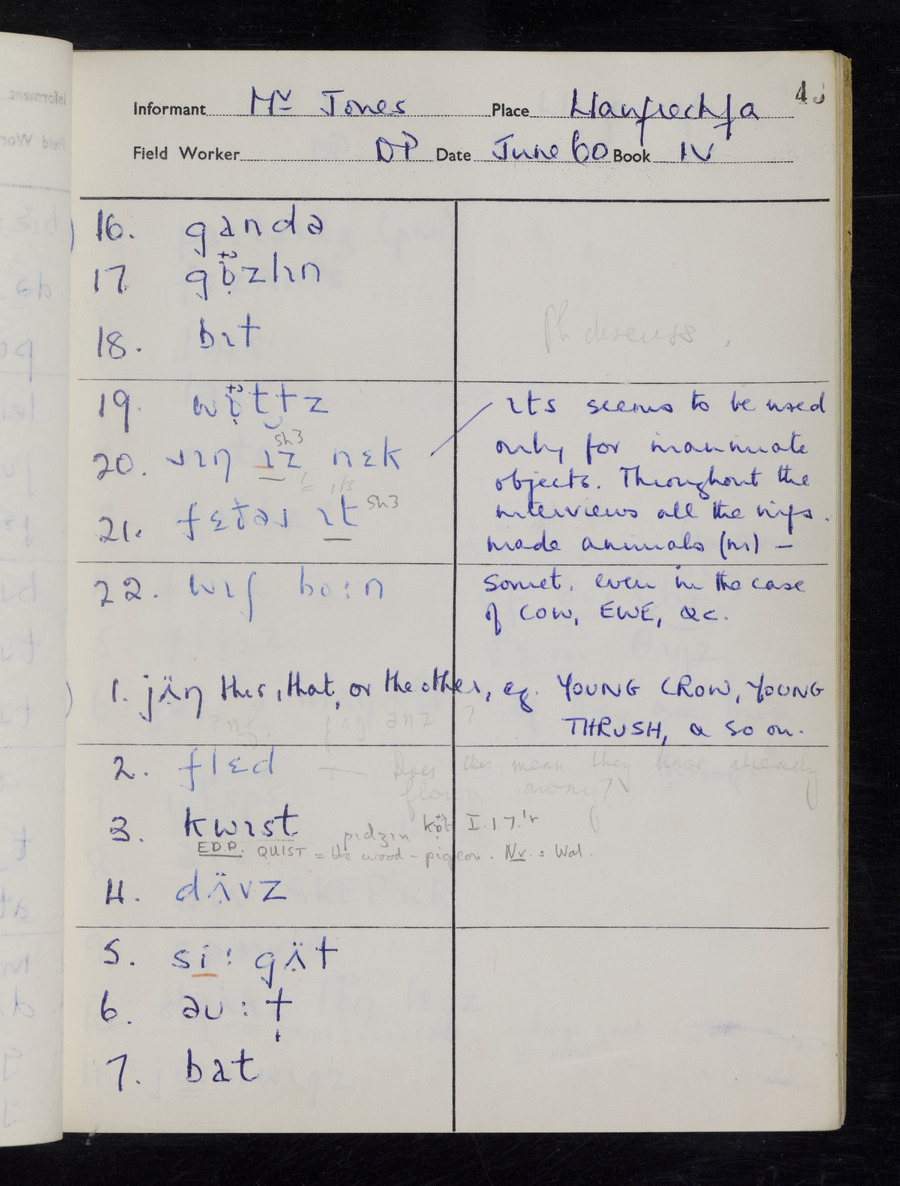 43
Informant Mr Jones Place Llanfrechfa
Field Worker DP Date June 60 Book IV
16. gandə
17 gɒ̣̈zlɪn
18. bɪt
Ph discuss.
19. wɒ̣̈tɫz
20. ɹɪŋ ɪz nɛk sh3
21. fɛðəɹ ɪt sh3
22. wɪʃ bo:n
ɪts seems to be used
only for inanimate
objects. Throughout the
interviews all the infs.
made animals (m) —
somet. even in the case
of COW, EWE, &c.
1. jʌ̈ŋ this, that, or the other, eg. YOUNG CROW, YOUNG
THRUSH, & so on.
jʌ̈ŋ ənz ?
2. flɛd — Does this mean they have already
flown away?
3. kwɪst pɪdʒɪn I.17.'r
E.D.D. QUIST = the wood-pigeon. Nr. s. Wal.
4. dʌ̈vz
5. si: gʌ̈t
6. əu:ɫ
7. bat